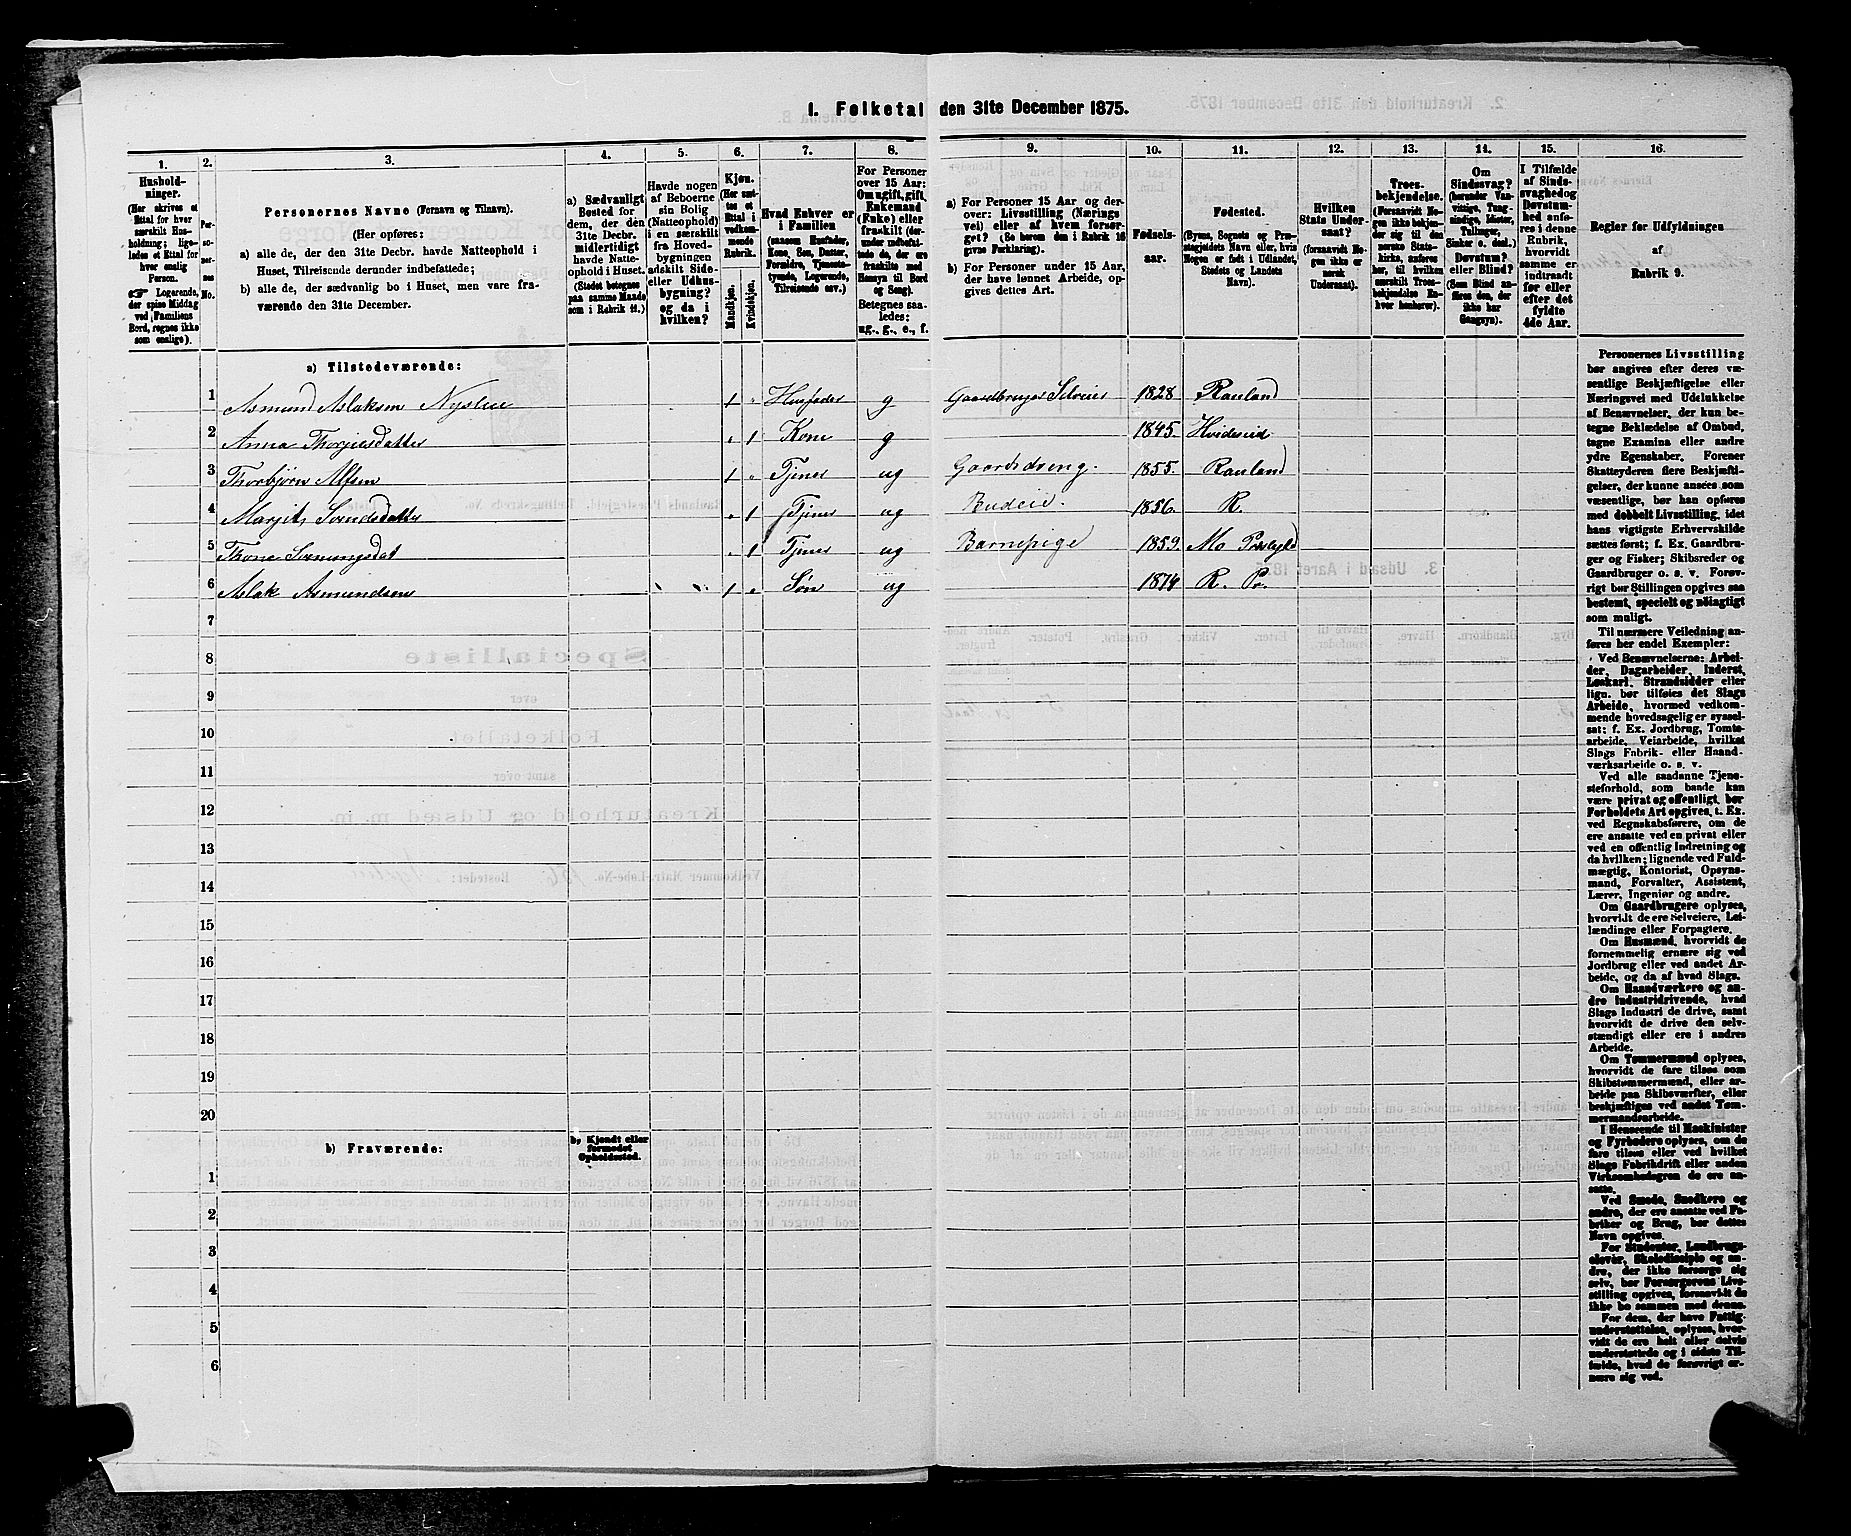 1. Folketal den 31te December 1875.
1. 2. 3. 4. 5. 6. 7. 8. 9. 10. 11. 12. 13. 14. 15. 16.
Hushold-
ninger.
(Her skrives et
Ettal for hver
særskilt Hus-
holdning; lige-
ledes et Ettal for
hver enslig
Person.
Logerende,
der spise Middag
ved Familiens
Bord, regnes ikke
som enslige).
Per-
so-
ner-
nes
No.
Personernes Navne (Fornavn og Tilnavn).
(Her opføres:
a) alle de, der den 31te Decbr. havde Natteophold i
Huset, Tilreisende derunder indbefattede;
b) alle de, der sædvanlig bo i Huset, men vare fra-
værende den 31te December.
a) Sædvanligt
Bosted for
dem, der den
31te Decbr.
midlertidigt
havde Natte-
ophold i Huset.
(Stedet betegnes
paa samme Maade
som i Rubrik 11.)
Havde nogen
af Beboerne
sin Bolig
(Natteophold)
i en særskilt
fra Hoved-
bygningen
adskilt Side-
eller Udhus-
bygning?
og da i
hvilken?
Kjøn.
(Her sæt-
tes et
Ettal i
vedkom-
mende
Rubrik.
Mandkjøn.
Kvindekjøn.
Hvad Enhver er
i Familien
(saasom Husfader,
Kone, Søn, Datter,
Forældre, Tjeneste-
tyende, Logerende,
Tilreisende osv.)
For Personer
over 15 Aar:
Om ugift, gift,
Enkemand
(Enke) eller
fraskilt (der-
under indbefat-
tede de, der ere
fraskilte med
Hensyn til Bord
og Seng).
Betegnes saa-
ledes:
ug., g., e., f.
a) For Personer 15 Aar og der-
over: Livsstilling (Nærings-
vei) eller af hvem forsør-
get? (Se herom den i Rubrik 16
givne Forklaring).
b) For Personer under 15 Aar,
der have lønnet Arbeide, op-
gives dettes Art.
Fødsels-
aar.
Fødested.
(Byens, Sognets og Præ-
stegjeldets Navn eller, hvis
Nogen er født i Udlandet,
Stedets og Landets
Navn).
Hvilken
Stats Under-
saat?
(forsaavidt No-
gen ikke er
norsk
Undersaat).
Troes-
bekjendelse.
(Forsaavidt No-
gen ikke beken-
der sig til den
norske Stats-
kirke, anføres
her, til hvilken
særskilt Troes-
bekjendelse En-
hver henhører).
Om
Sindssvag?
(herunder Van-
vittige, Tung-
sindige, Idioter,
Tullinger,
Sinker o. desl.)
Døvstum?
eller Blind?
(Som Blind an-
føres den, der
ikke har
Gangsyn).
I Tilfælde
af Sinds-
svaghed og
Døvstum-
hed anfø-
res i denne
Rubrik,
hvorvidt
samme er
indtraadt
før eller
efter det
fyldte
4de Aar.
Regler for Udfyldningen
af
Rubrik 9.
a) Tilstedeværende:
1 Asmund Aslaksen Nystue 1 " Husfader g Gaardbruger Selveier 1828 Rauland
2 Anna Thorgiersdatter " 1 Kone g 1845. Hvideseid
3 Thorbjørn Alfsen 1 " Tjener ug Gaardsdreng. 1855. Rauland
4 Margit Svendsdatter " 1 Tjener ug Budeie. 1856. R.
5 Thone Sæmungsdat " 1 Tjener ug Barnepige 1859. Mo
6 Aslak Asmundsen 1 " Søn ug 1874 R. Pr.
7
8
9
10
11
12
13
14
15
16
17
18
19
20
b) Fraværende:
b) Kjendt eller
formodet
Opholdssted.
1
2
3
4
5
6
Personernes Livsstilling
bør angives efter deres væ-
sentlige Beskjæftigelse eller
Næringsvei med Udelukkelse
af Benævnelser, der kun be-
tegne Beklædelse af Ombud,
tagne Examina eller andre
ydre Egenskaber. Forener
Skatteyderen flere Beskjæfti-
gelser, der kunne ansees som
væsentlige, bør han opføres
med dobbelt Livsstilling, idet
hans vigtigste Erhvervskilde
sættes først; f. Ex. Gaardbru-
ger og Fisker; Skibsreder og
Gaardbruger o. s. v. Forøv-
rigt bør Stillingen opgives saa
bestemt, specielt og nøiagtigt
som muligt.
Til nærmere Veiledning an-
føres her endel Exempler:
Ved Benævnelserne: Arbei-
der, Dagarbeider, Inderst,
Løskarl, Strandsidder eller
lign. bør tilføies det Slags
Arbeide, hvormed vedkom-
mende hovedsagelig er syssel-
sat: f. Ex. Jordbrug, Tomte-
arbeide, Veiarbeide, hvilket
Slags Fabrik- eller Haand-
værksarbeide o. s. v.
Ved alle saadanne Tjene-
steforhold, som baade kan
være privat og offentligt, bør
Forholdets Art opgives, t. Ex.
ved Regnskabsførere, om de
ere ansatte ved en privat eller
ved en offentlig Indretning og
da hvilken; lignende ved Fuld-
mægtig, Kontorist, Opsyns-
mand, Forvalter, Assistent,
Lærer, Ingeniør og andre.
Om Gaardbrugere oplyses,
hvorvidt de ere Selveiere, Lei-
lændinge eller Forpagtere.
Om Husmænd, hvorvidt de
fornemmelig ernære sig ved
Jordbrug eller ved andet Ar-
beide, og da af hvad Slags.
Om Haandværkere og an-
dre Industridrivende, hvad
Slags Industri de drive, samt
hvorvidt de drive den selv-
stændigt eller ere i andres
Arbeide.
Om Tømmermænd oplyses,
hvorvidt de fare tilsøs som
Skibstømmermænd, eller ar-
beide paa Skibsværfter, eller
beskjæftiges ved andet Tøm-
mermandsarbeide.
I Henseende til Maskinister
og Fyrbødere oplyses, om de
fare tilsøs eller ved hvilket
Slags Fabrikdrift eller anden
Virksomhedsgren de ere an-
satte.
Ved Smede, Snedkere og
andre, der ere ansatte ved Fa-
briker og Brug, bør dettes
Navn opgives.
For Studenter, Landbrugs-
elever, Skoledisciple og an-
dre, der ikke forsørge sig
selv, bør Forsørgerens Livs-
stilling opgives, forsaavidt de
ikke bo sammen med denne.
For dem, der have Fattig-
understøttelse, oplyses, hvor-
vidt de ere helt eller delvis
understøttede og i sidste Til-
fælde, hvad de forøvrigt er-
nære sig ved.